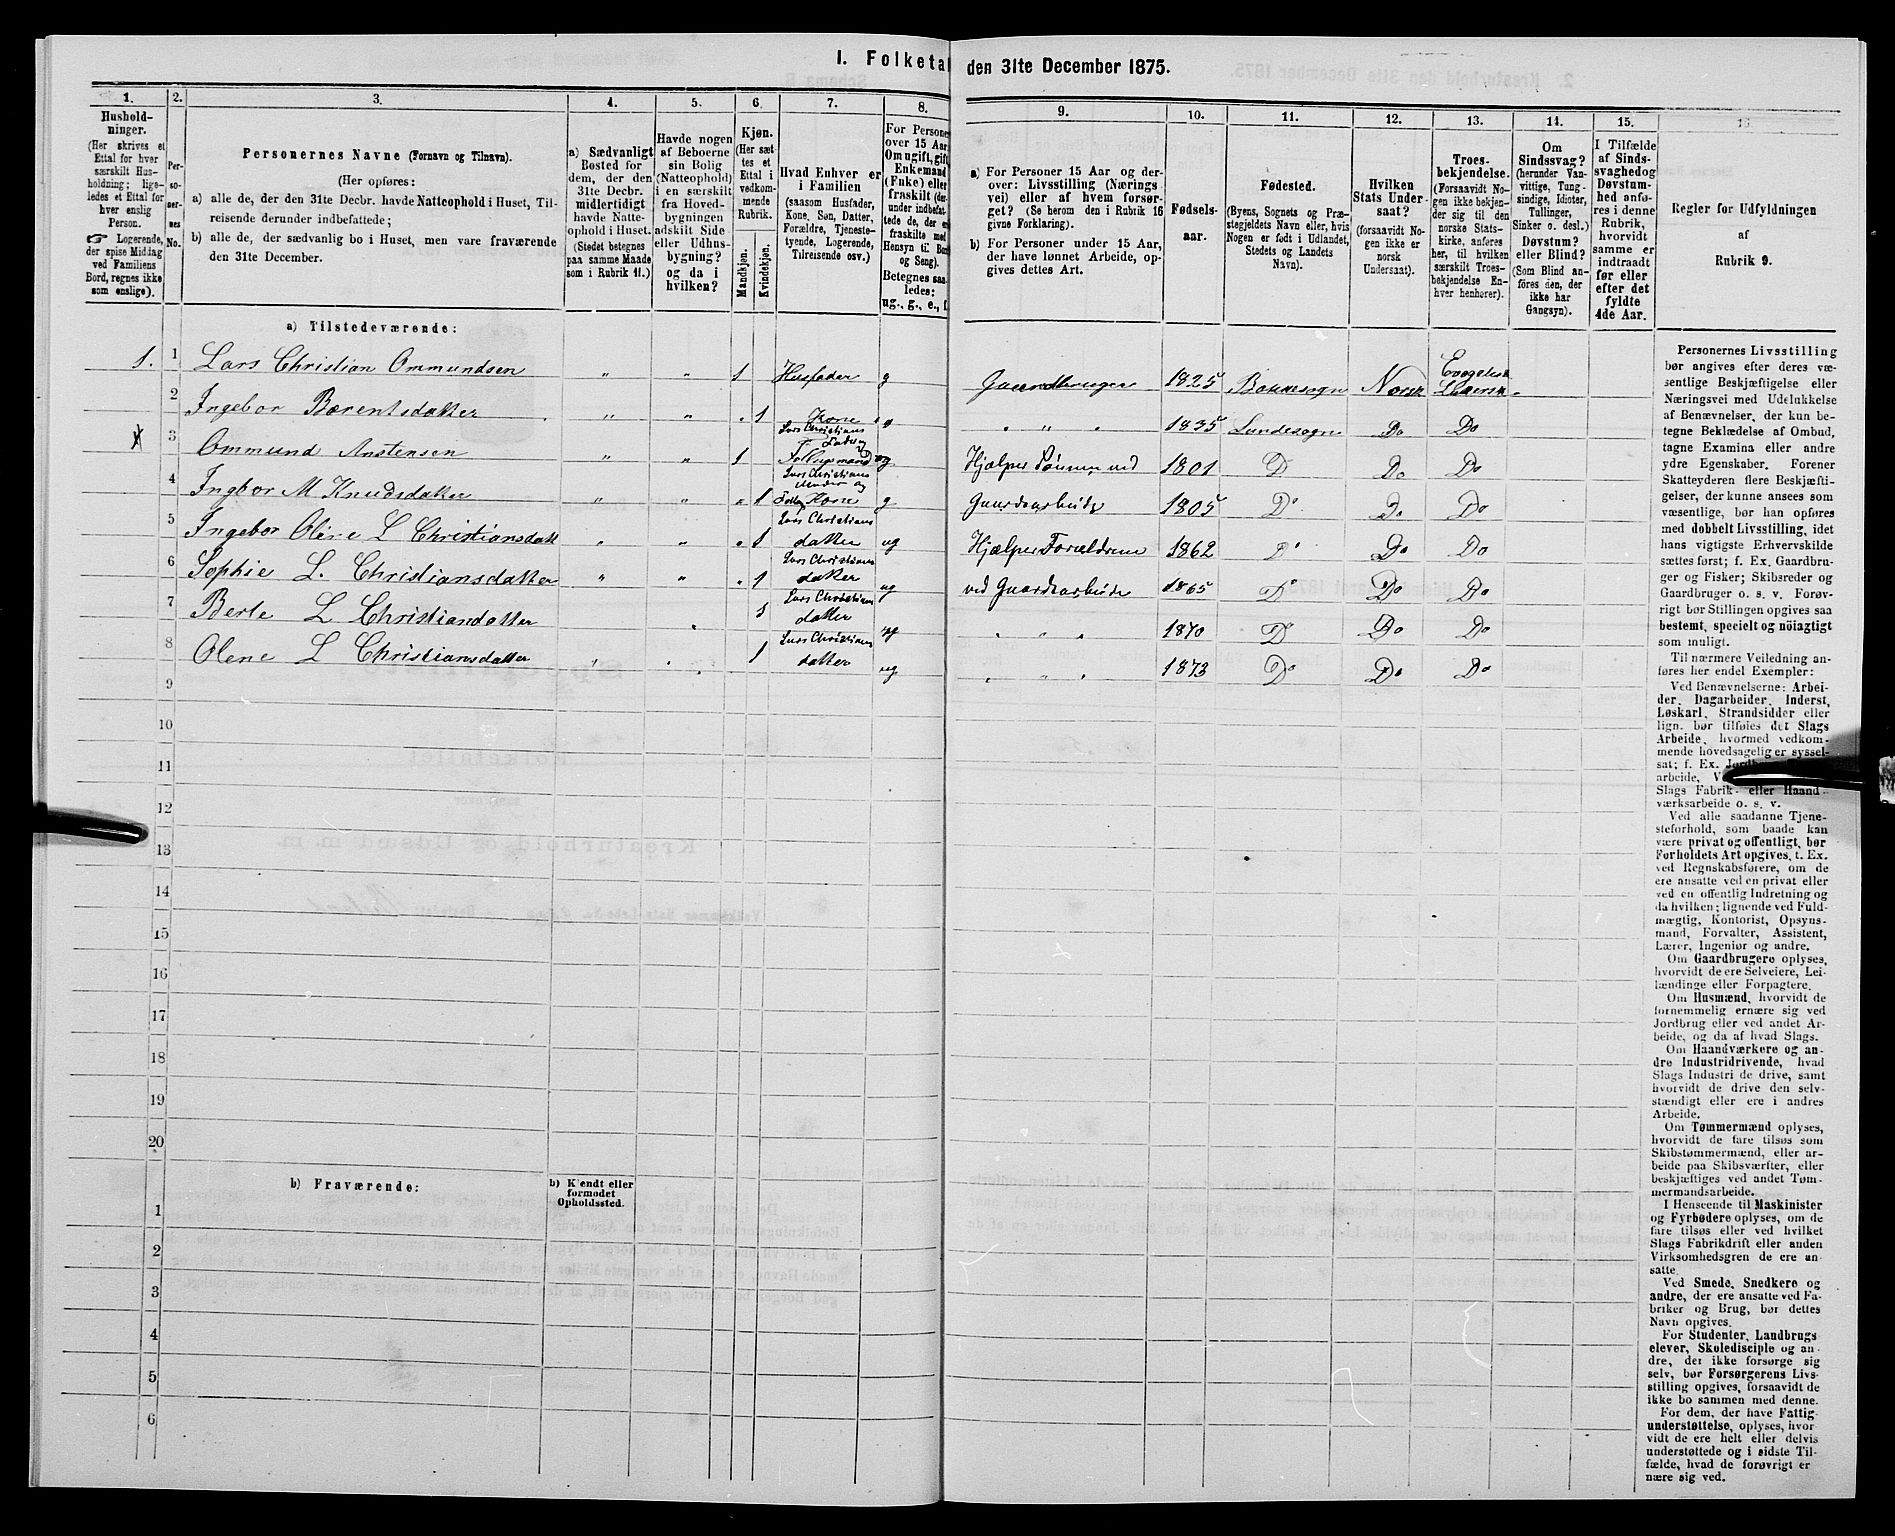 I. Folketal den 31te December 1875.
1. 2. 3. 4. 5. 6. 7. 8. 9. 10. 11. 12. 13. 14. 15. 16.
Hushold-
ninger.
(Her skrives et
Ettal for hver
særskilt Hus-
holdning; lige-
ledes et Ettal for
hver enslig
Person.
☞ Logerende,
der spise Middag
ved Familiens
Bord, regnes ikke
som enslige).
Per-
so-
ner-
nes
No.
Personernes Navne (Fornavn og Tilnavn).
(Her opføres:
a) alle de, der den 31te Decbr. havde Natteophold i Huset, Til-
reisende derunder indbefattede;
b) alle de, der sædvanlig bo i Huset, men vare fraværende
den 31te December.
a) Sædvanligt
Bosted for
dem, der den
31te Decbr.
midlertidigt
havde Natte-
ophold i Huset.
(Stedet betegnes
paa samme Maade
som i Rubrik 11.)
Havde nogen
af Beboerne
sin Bolig
(Natteophold)
i en særskilt
fra Hoved-
bygningen
adskilt Side
eller Udhus-
bygning?
og da i
hvilken?
Kjøn.
(Her sæt-
tes et
Ettal i
vedkom-
mende
Rubrik.
Mandkjøn.
Kvindekjøn.
Hvad Enhver er
i Familien
(saasom Husfader,
Kone, Søn, Datter,
Forældre, Tjeneste-
tyende, Logerende,
Tilreisende osv.)
For Personer
over 15 Aar:
Om ugift, gift,
Enkemand
(Enke) eller
fraskilt (der-
under indbefat-
tede de, der ere
fraskilte med
Hensyn til Bord
og Seng).
Betegnes saa-
ledes:
ug., g., e., f.
a) For Personer 15 Aar og der-
over: Livsstilling (Nærings-
vei) eller af hvem forsør-
get? (Se herom den i Rubrik 16
givne Forklaring).
b) For Personer under 15 Aar,
der have lønnet Arbeide, op-
gives dettes Art.
Fødsels-
aar.
Fødested.
(Byens, Sognets og Præ-
stegjeldets Navn eller, hvis
Nogen er født i Udlandet,
Stedets og Landets
Navn).
Hvilken
Stats Under-
saat?
(forsaavidt No-
gen ikke er
norsk
Undersaat).
Troes-
bekjendelse.
(Forsaavidt No-
gen ikke bekjen-
der sig til den
norske Stats-
kirke, anføres
her, til hvilken
særskilt Troes-
bekjendelse En-
hver henhører).
Om
Sindssvag?
(herunder Van-
vittige, Tung-
sindige, Idioter,
Tullinger,
Sinker o. desl.)
Døvstum?
eller Blind?
(Som Blind an-
føres den, der
ikke har
Gangsyn).
I Tilfælde
af Sinds-
svaghed og
Døvstum-
hed anfø-
res i denne
Rubrik,
hvorvidt
samme er
indtraadt
før eller
efter det
fyldte
4de Aar.
Regler for Udfyldningen
af
Rubrik 9.
a) Tilstedeværende:
1. 1 Lars Christian Ommundsen " " 1 Husfader g Gaardbruger 1825 Bakkesogn Norsk Evagelisk Lutersk
2 Ingebor Bærentsdatter " " " 1 Kone g " " " 1835 Lundesogn Do Do
3 Ommund Anstensen " " 1 Lars Christians Fader og g Hjælper Sønnen ved 1801 D Do Do
4 Ingbor M Knudsdatter " " " 1 Lars Christians Moder og Kone g Gaardsarbeide 1805 Do Do Do
5 Ingebor Olene L Christiansdatt " " " 1 Lars Christians datter ug Hjælper Forældrene 1862 Do Do Do
6 Sophie L. Christiansdatter " " " 1 Lars Christians datter ug ved Gaardsarbeide 1865 D Do Do
7 Berte L Christiandatter " 1 Lars Christians datter ug " " " 1870 D Do Do
8 Olene L Christiansdatter " " 1 Lars Christians datter ug " " " 1873 Do Do Do
9
10
11
12
13
14
15
16
17
18
19
20
b) Fraværende:
b) Kjendt eller
formodet
Opholdssted.
1
2
3
4
5
6
Personernes Livsstilling
bør angives efter deres væ-
sentlige Beskjæftigelse eller
Næringsvei med Udelukkelse
af Benævnelser, der kun be-
tegne Beklædelse af Ombud,
tagne Examina eller andre
ydre Egenskaber. Forener
Skatteyderen flere Beskjæfti-
gelser, der kunne ansees som
væsentlige, bør han opføres
med dobbelt Livsstilling, idet
hans vigtigste Erhvervskilde
sættes først; f. Ex. Gaardbru-
ger og Fisker; Skibsreder og
Gaardbruger o. s. v. Forøv-
rigt bør Stillingen opgives saa
bestemt, specielt og nöiagtigt
som muligt.
Til nærmere Veiledning an-
føres her endel Exempler:
Ved Benævnelserne: Arbei-
der, Dagarbeider, Inderst,
Løskarl, Strandsidder eller
lign. bør tilføies det Slags
Arbeide, hvormed vedkom-
mende hovedsagelig er syssel-
sat; f. Ex.
arbeide,
Slags Fabrik- eller Haand-
værksarbeide o. s. v.
Ved alle saadanne Tjene-
steforhold, som baade kan
være privat og offentligt, bør
Forholdets Art opgives, t. Ex.
ved Regnskabsførere, om de
ere ansatte ved en privat eller
ved en offentlig Indretning og
da hvilken; lignende ved Fuld-
mægtig, Kontorist, Opsyns-
mand, Forvalter, Assistent,
Lærer, Ingeniør og andre.
Om Gaardbrugere oplyses,
hvorvidt de ere Selveiere, Lei-
lændinge eller Forpagtere.
Om Husmænd, hvorvidt de
fornemmelig ernære sig ved
Jordbrug eller ved andet Ar-
beide, og da af hvad Slags.
Om Haandværkere og an-
dre Industridrivende, hvad
Slags Industri de drive, samt
hvorvidt de drive den selv-
stændigt eller ere i andres
Arbeide.
Om Tømmermænd oplyses,
hvorvidt de fare tilsøs som
Skibstømmermænd, eller ar-
beide paa Skibsværfter, eller
beskjæftiges ved andet Tøm-
mermandsarbeide.
I Henseende til Maskinister
og Fyrbødere oplyses, om de
fare tilsøs eller ved hvilket
Slags Fabrikdrift eller anden
Virksomhedsgren de ere an-
satte.
Ved Smede, Snedkere og
andre, der ere ansatte ved Fa-
briker og Brug, bør dettes
Navn opgives.
For Studenter, Landbrugs-
elever, Skoledisciple og an-
dre, der ikke forsørge sig
selv, bør Forsørgerens Livs-
stilling opgives, forsaavidt de
ikke bo sammen med denne.
For dem, der have Fattig-
understøttelse, oplyses, hvor-
vidt de ere helt eller delvis
understøttede og i sidste Til-
fælde, hvad de forøvrigt er-
nære sig ved.